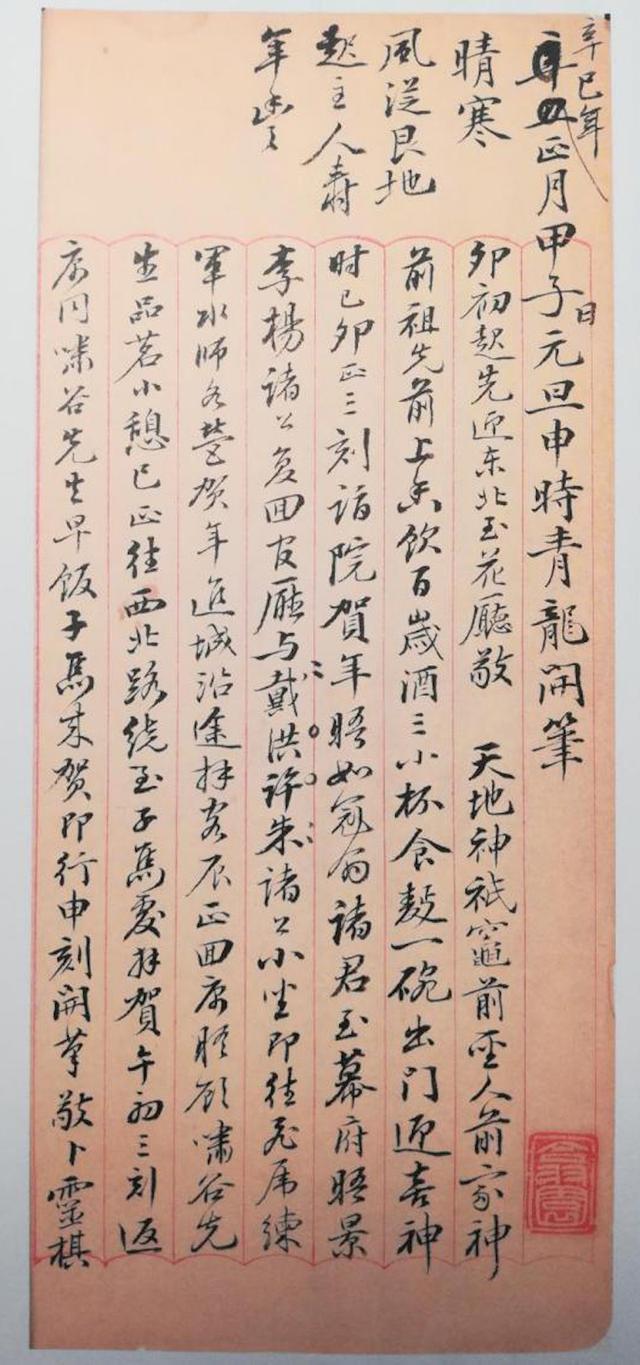 辛巳年
正月甲子日元旦申時青龍開筆
晴寒
風從艮地
起主人壽
年豐
卯初起先迎东北至花廳敬 天地神祇竈前聖人前家神
前祖先前上香飲百歲酒三小杯食麪一碗出门迎喜神
时已卯正三刻詣院賀年晤如冠翁诸君至幕府晤景
李楊诸公复回官廳与戴洪许朱诸公小坐即往虎席練
軍水师各营贺年進城沿途拜客辰正回寓晤顾嘯谷先
生品茗小憩巳正往西北路绕至子馬處拜賀午初三刻返
寓同嘯谷先生早饭子馬来贺即行申刻開筆敬卜靈棋